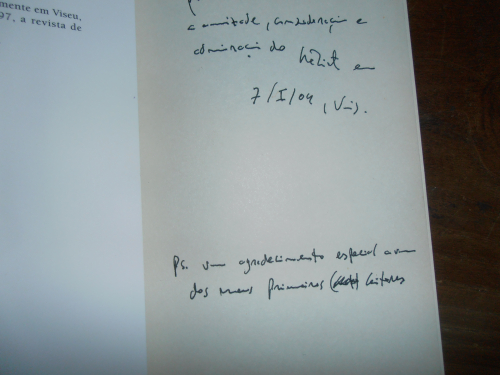 mente em Viseu,
97, a revista de
a amizade, consideração e
admiração do em
7/I/04, (Vis).
Ps. um agradecimento especial a um
dos meus primeiros leitores